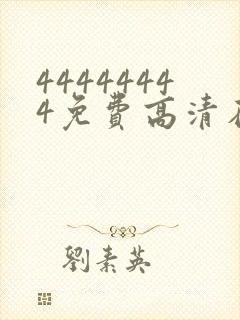 4444444
4免費高清在
劉素英